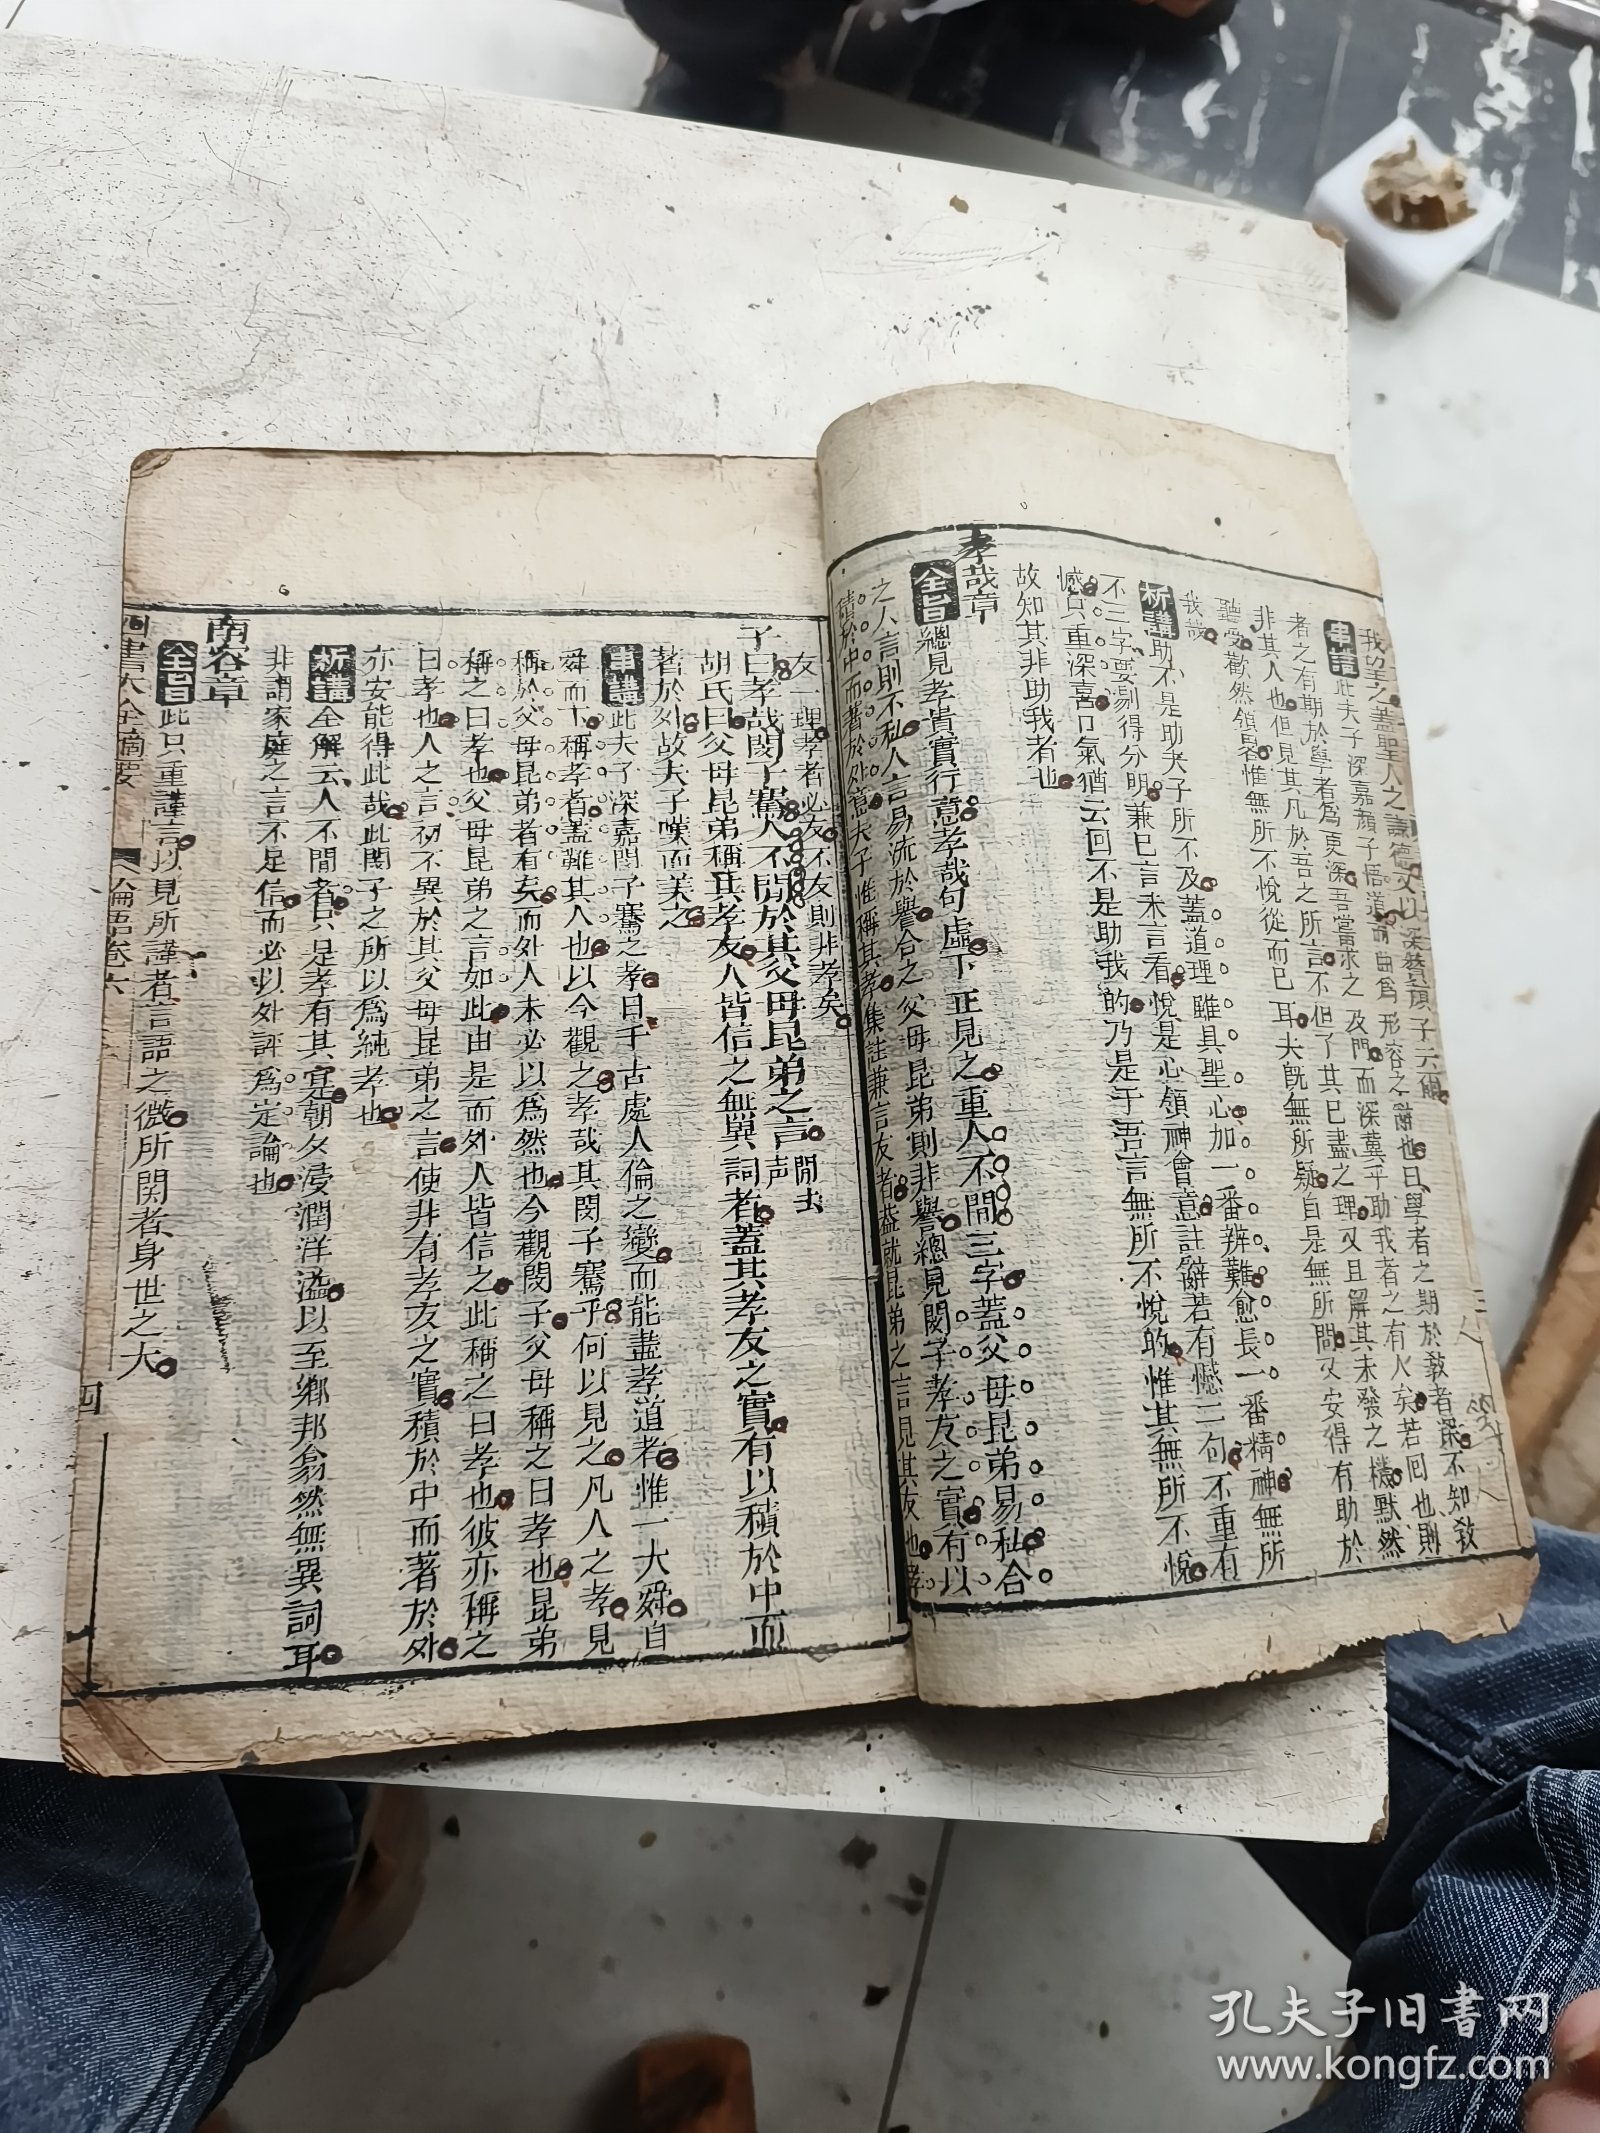 我望之蓋聖人之謙德又以深贊顏子云爾
串講此夫子深嘉顏子悟道而曲為形容之辭也曰學者之期於教者深不知教
者之有期於學者為更深吾嘗求之及門而深冀乎助我者之有人矣若回也則
非其人也但見其凡於吾之所言不但了其已盡之理又且解其未發之機默然
聽受歡然領畧惟無所不悅從而已耳夫既無所疑自是無所問又安得有助於
我哉
析講助不是助夫子所不及蓋道理雖具聖心加一番辨難愈長一番精神無所
不三字要剔得分明兼已言未言看悅是心領神會意註辭若有憾二句不重有
憾只重深喜口氣猶云回不是助我的乃是于吾言無所不悅的惟其無所不悅
故知其非助我者也
孝哉章
全旨總見孝貴實行意孝哉句虛下正見之重人不間三字蓋父母昆弟易私合
之人言則不私人言易流於譽合之父母昆弟則非譽總見閔子孝友之實有以
積於中而著於外意夫子惟稱其孝集註兼言友者益就昆弟之言見其友也孝
友一理孝者必友不友則非孝矣
子曰孝哉閔子騫人不間於其父母昆弟之言 間去声
胡氏曰父母昆弟稱其孝友人皆信之無異詞者蓋其孝友之實有以積於中而
著於外故夫子嘆而美之
串講此夫子深嘉閔子騫之孝曰千古處人倫之變而能盡孝道者惟一大舜自
舜而下稱孝者蓋難其人也以今觀之孝哉其閔子騫乎何以見之凡人之孝見
稱於父母昆弟者有矣而外人未必以為然也今觀閔子父母稱之曰孝也昆弟
稱之曰孝也父母昆弟之言如此由是而外人皆信之此稱之曰孝也彼亦稱之
曰孝也人之言初不異於其父母昆弟之言使非有孝友之實積於中而著於外
亦安能得此哉此閔子之所以為純孝也
析講全解云人不間者只是孝有其寔朝夕浸潤洋溢以至鄉邦翕然無異詞耳
非謂家庭之言不足信而必以外評為定論也
南容章
全旨此只重謹言以見所謹者言語之微所関者身世之大
四書大全摘要 論語卷六 四
孔夫子旧书网
www.kongfz.com